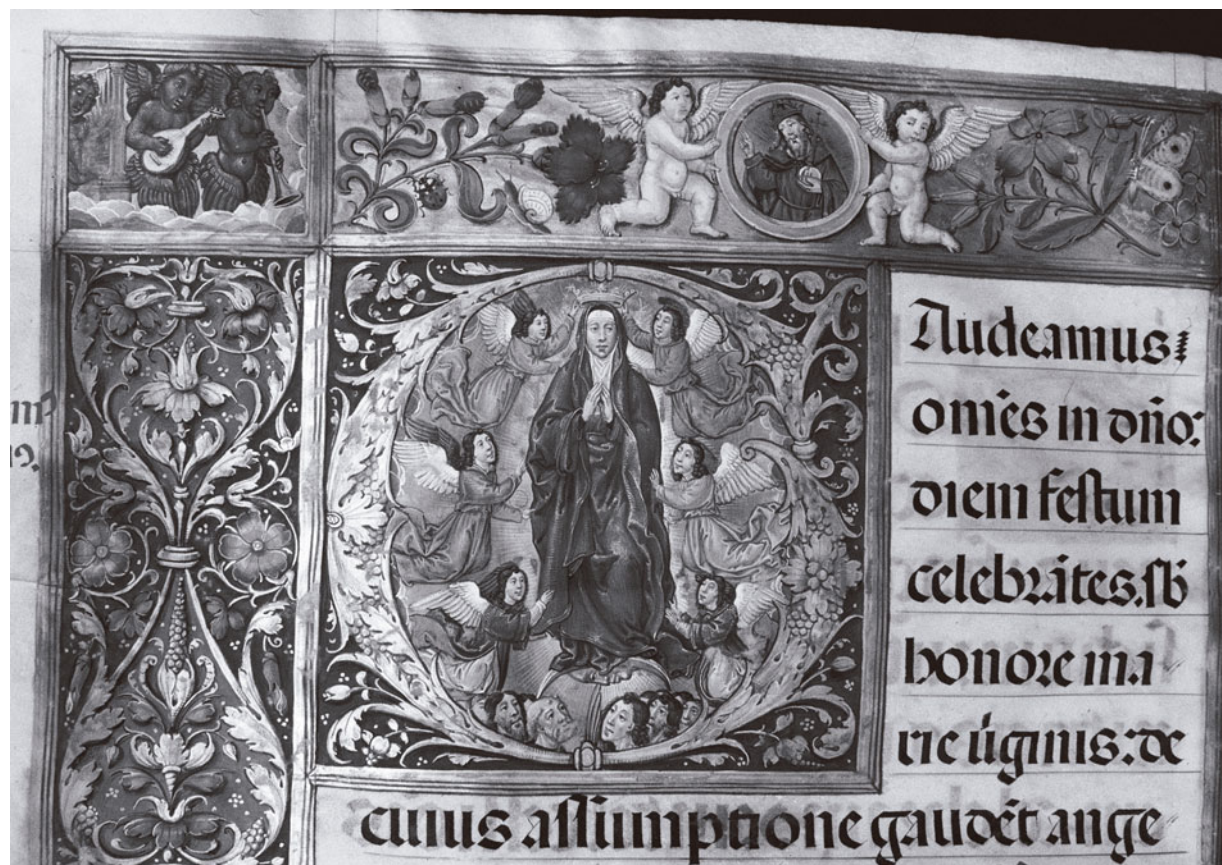 Audeamus
om̄es in dn̄o:
diem festum
celebrātes. sb̄
honore ma
rie úginis: de
cuius assumptione gaudēt ange